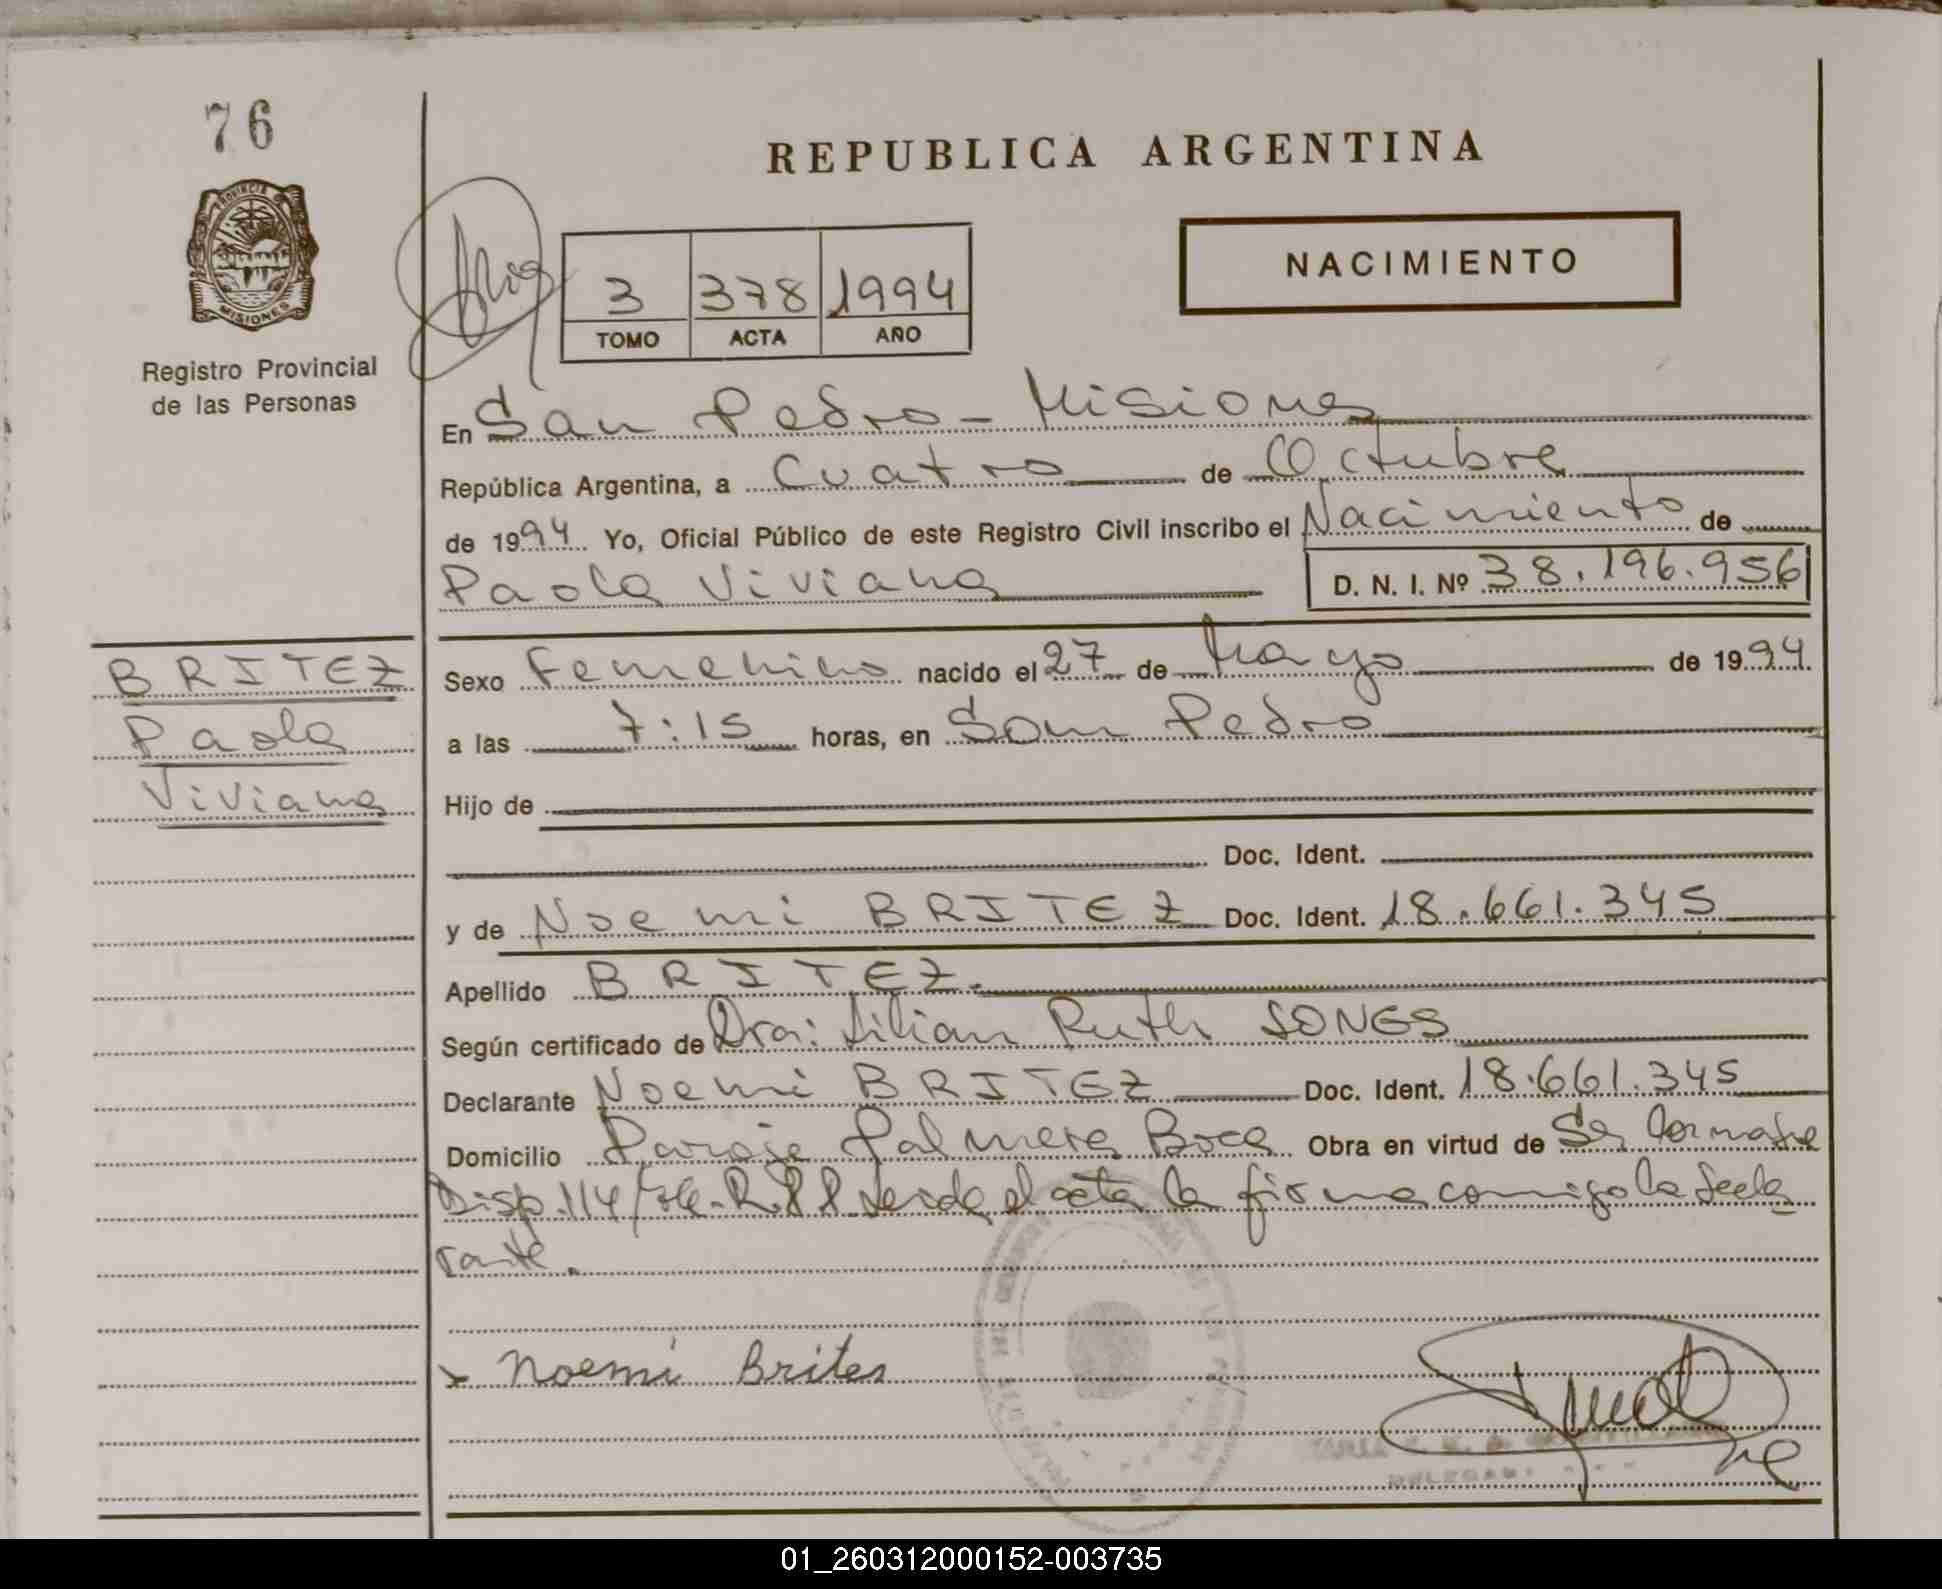 76
REPUBLICA ARGENTINA
PROVINCIA
MISIONES
Registro Provincial
de las Personas
3 378 1994
TOMO ACTA AÑO
NACIMIENTO
En San Pedro - Misiones
República Argentina, a Cuatro de Octubre
de 1994 Yo, Oficial Público de este Registro Civil inscribo el Nacimiento de
Paola Viviana D. N. I. Nº 38.196.956
BRITEZ
Paola
Viviana
Sexo Femenino nacido el 27 de Mayo de 1994
a las 7:15 horas, en San Pedro
Hijo de
Doc. Ident.
y de Noemi BRITEZ Doc. Ident. 18.661.345
Apellido BRITEZ.
Según certificado de Dra: Lilian Ruth SONGS
Declarante Noemi BRITEZ Doc. Ident. 18.661.345
Domicilio Paraje Palmera Boca Obra en virtud de
Disp. 114/ Leida el acta la firma comigo la decla
rante.
x Noemi Brites
01_260312000152-003735